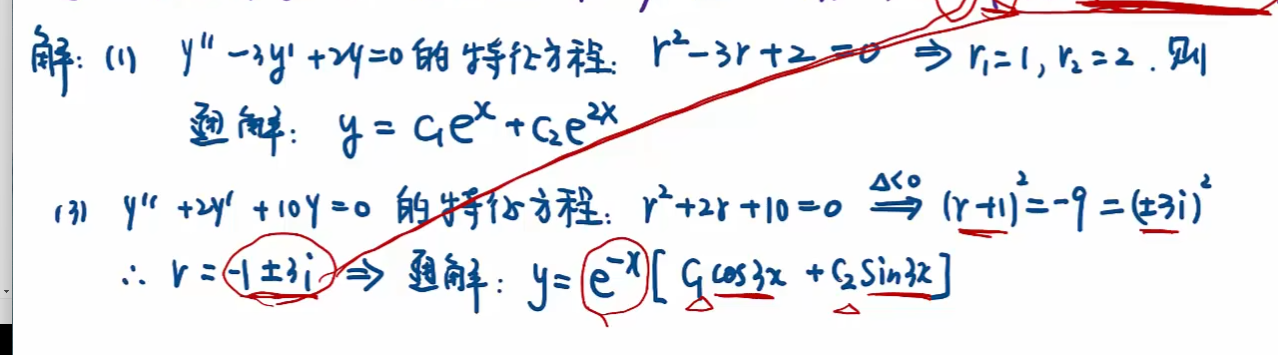 解: (1) y'' -3y' +2y=0 的特征方程: r²-3r+2=0 ⇒ r₁=1, r₂=2. 则
通解: y = C₁eˣ + C₂e²ˣ
(3) y'' +2y' +10y=0 的特征方程: r²+2r+10=0 Δ<0 ⟹ (r+1)²=-9=(±3i)²
∴ r = -1±3i ⇒ 通解: y = e⁻ˣ [ C₁cos3x + C₂Sin3x ]